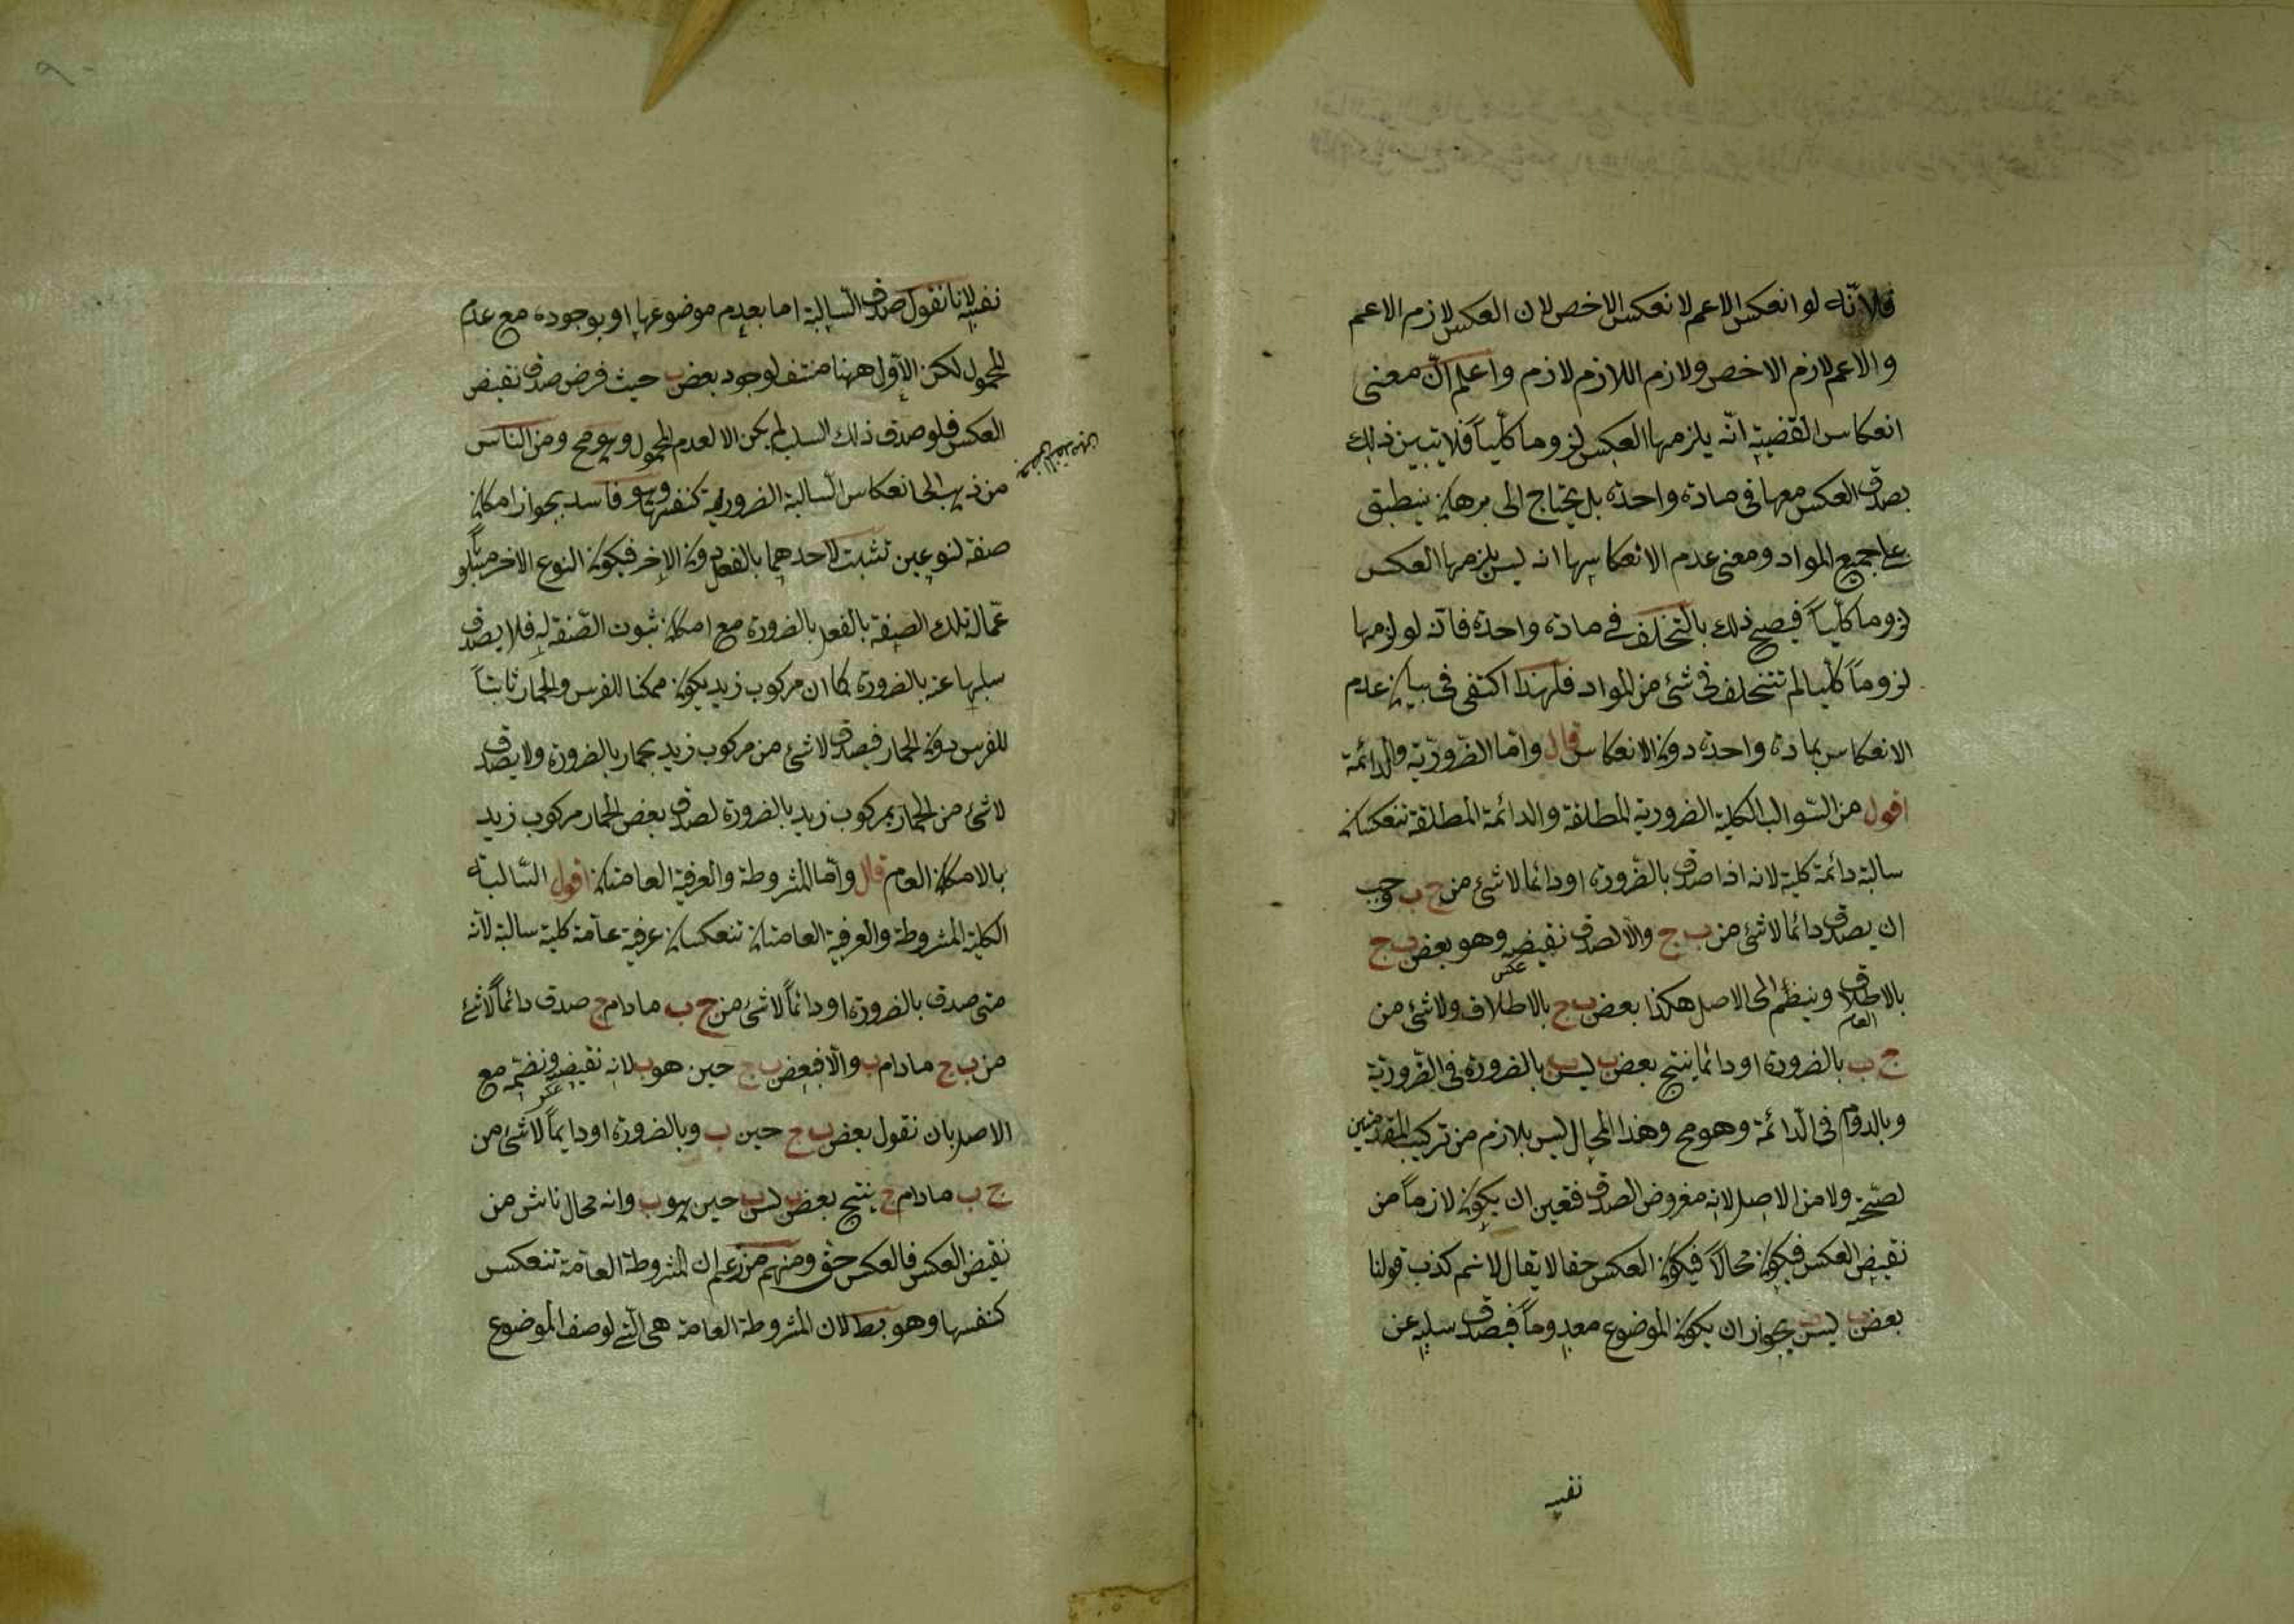 فلانّه لو انعكس الاعم لانعكس الاخص لان العكس لازم الاعم
والاعم لازم الاخص ولازم اللازم لازم واعلم انّ معنى
انعكاس القضية انّه يلزمها العكس لزوما كلّياً فلا يتبين ذلك
بصدق العكس معها فى مادة واحدة بل يحتاج الى برهان ينطبق
على جميع المواد ومعنى عدم الانعكاسها انه ليس يلزمها العكس
لزوما كلّياً فيصح ذلك بالتخلف فى مادة واحدة فانه لو لزمها
لزوماً كلّيا لم تتخلف فى شئ من المواد فلهذا اكتفى فى بيان عدم
الانعكاس بمادة واحدة دون الانعكاس قال وامّا الضّروريّة والدّائمة
اقول من السّوالب الكلية الضرورية المطلقة والدائمة المطلقة تنعكسان
سالبة دائمة كلية لانه اذا صدق بالضّرورة او دائما لا شئ من ج ب وجب
ان يصدق دائما لا شئ من ب ج والّا لصدق نقيضه وهو بعض ب ج
بالاطلاق العام وينظم الى الاصل هكذا بعض ب ج بالاطلاق ولا شئ من
ج ب بالضرورة او دائما ينتج بعض ب ليس ب بالضرورة فى الضّروريّة
وبالدوام فى الدّائمة وهو مح وهذا المحال ليس بلازم من تركيب المقدمتين
لصحّته ولا من الاصل لانه مفروض الصدق فتعين ان يكون لازماً من
نقيض العكس فيكون محالاً فيكون العكس حقا لا يقال لا نسم كذب قولنا
بعض ب ليس ب لجواز ان يكون الموضوع معدوماً فيصدق سلبه عن
نفسه
نفسه لانا نقول صدق السّالبة اما بعدم موضوعها او بوجوده مع عدم
المحمول لكن الاوّل ههنا منتف لوجود بعض ب حيث فرض صدق نقيض
العكس فلو صدق ذلك السلب لم يكن الا لعدم المحمول وهو مح ومن الناس
من ذهب الى انعكاس السّالبة الضرورية كنفسها وهو فاسد لجواز امكان
صفة لنوعين تثبت لاحدهما بالفعل دون الاخر فيكون النوع الاخر مسلوباً
عمّا له تلك الصفة بالفعل بالضرورة مع امكان ثبوت الصّفة له فلا يصدق
سلبها عنه بالضرورة كما ان مركوب زيد يكون ممكنا للفرس والحمار ثابتاً
للفرس دون الحمار فيصدق لا شئ من مركوب زيد بحمار بالضرورة ولا يصدق
لا شئ من الحمار بمركوب زيد بالضرورة لصدق بعض الحمار مركوب زيد
بالامكان العام قال وامّا المشروطة والعرفية العامتان اقول السّالبة
الكلية المشروطة والعرفية العامتان تنعكسان عرفية عامّة كلية سالبة لانّه
متى صدق بالضرورة او دائماً لا شئ من ج ب مادام ج صدق دائماً لا شئ
من ب ج مادام ب والّا فبعض ب ج حين هو ب لانه نقيضه ونضمّه مع
الاصل بان نقول بعض ب ج حين ب وبالضرورة او دايماً لا شئ من
ج ب مادام ج ينتج بعض ب ليس ب حين هو ب وانه محال ناش من
نقيض العكس فالعكس حق ومنهم من زعم ان المشروطة العامّة تنعكس
كنفسها وهو بط لان المشروطة العامة هى الّتى لوصف الموضوع